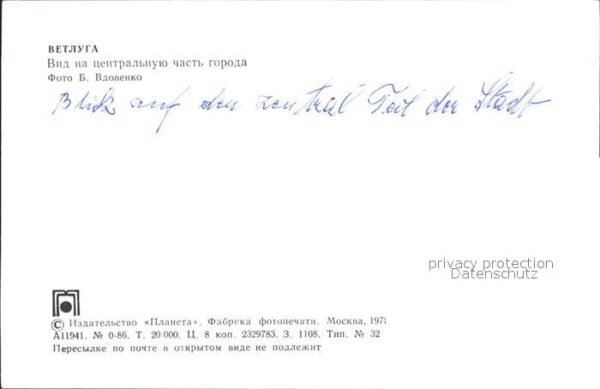 ВЕТЛУГА
Вид на центральную часть города
Фото Б. Вдовенко
Blick auf den zentral Teil der Stadt
privacy protection
Datenschutz
© Издательство «Планета». Фабрика фотопечати. Москва, 197
А11941. № 0-86. Т. 20 000. Ц. 8 коп. 2329783. З. 1108. Тип. № 32
Пересылке по почте в открытом виде не подлежит